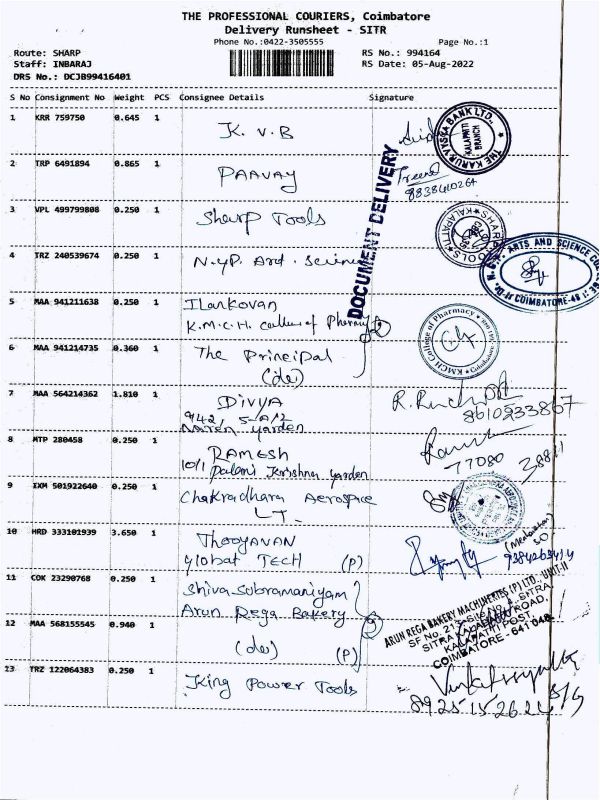 THE PROFESSIONAL COURIERS, Coimbatore
Delivery Runsheet - SITR
Phone No.:0422-3505555 Page No.:1
Route: SHARP RS No.: 994164
Staff: INBARAJ RS Date: 05-Aug-2022
DRS No.: DCJB99416401
S No Consignment No Weight PCS Consignee Details Signature
1 KRR 759750 0.645 1 K. V. B
THE KARUR VYSYA BANK LTD., KALAPATTI BRANCH
2 TRP 6491894 0.865 1 PAAVAY
DOCUMENT DELIVERY
3 VPL 499799808 0.250 1 Sharp Tools
SHARP TOOLS KALAPATTI
4 TRZ 240539674 0.250 1 N.G.P. Art. Science
ARTS AND SCIENCE COLLEGE COIMBATORE-48
5 MAA 941211638 0.250 1 Ilankovan
K.M.C.H. College of
KMCH College of Pharmacy Coimbatore
6 MAA 941214735 0.360 1 The Principal
(do)
7 MAA 564214362 1.810 1 DIVYA
942, 5-A/2
Naren garden
8610933867
8 MTP 280458 0.250 1 RAMESH
10/1 Palani Krishna garden
77080 38811
9 IXM 501922640 0.250 1 Chakradhara Aerospace
LT.
10 HRD 333101939 3.650 1 THOOYAVAN
Global TECH (P)
11 COK 23290768 0.250 1 Shiva Subramaniyam
Arun Rega Bakery
12 MAA 568155545 0.940 1
(do) (P)
ARUN REGA BAKERY MACHINERIES (P) LTD., UNIT-II
KALAPATTI ROAD,
KALAPATTI POST,
COIMBATORE - 641 048
13 TRZ 122064383 0.250 1 King Power Tools